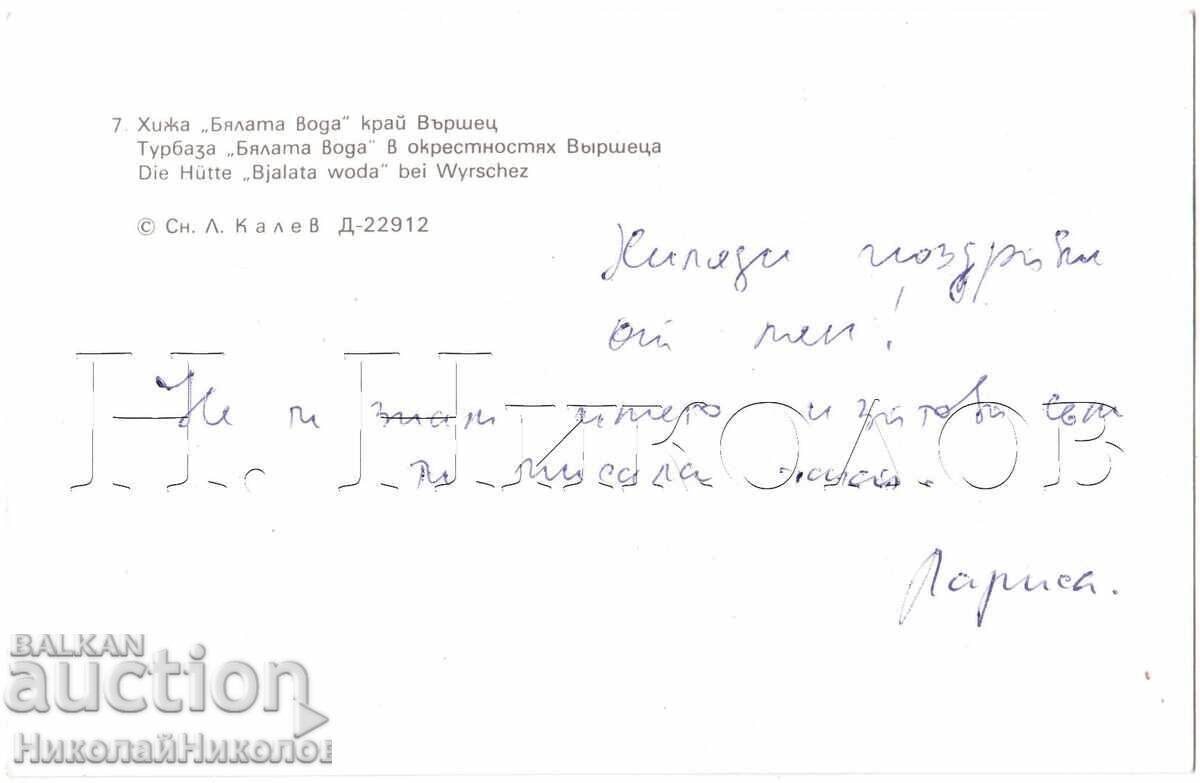 7. Хижа „Бялата вода" край Вършец
Турбаза „Бялата вода" в окрестностях Выршеца
Die Hütte „Bjalata woda" bei Wyrschez
© Сн. Л. Калев Д-22912
Хиляди поздрави
от мен!
Не ти знам името и затова съм
ти писала
Лариса.
Н. Николов
BALKAN
auction
НиколайНиколов